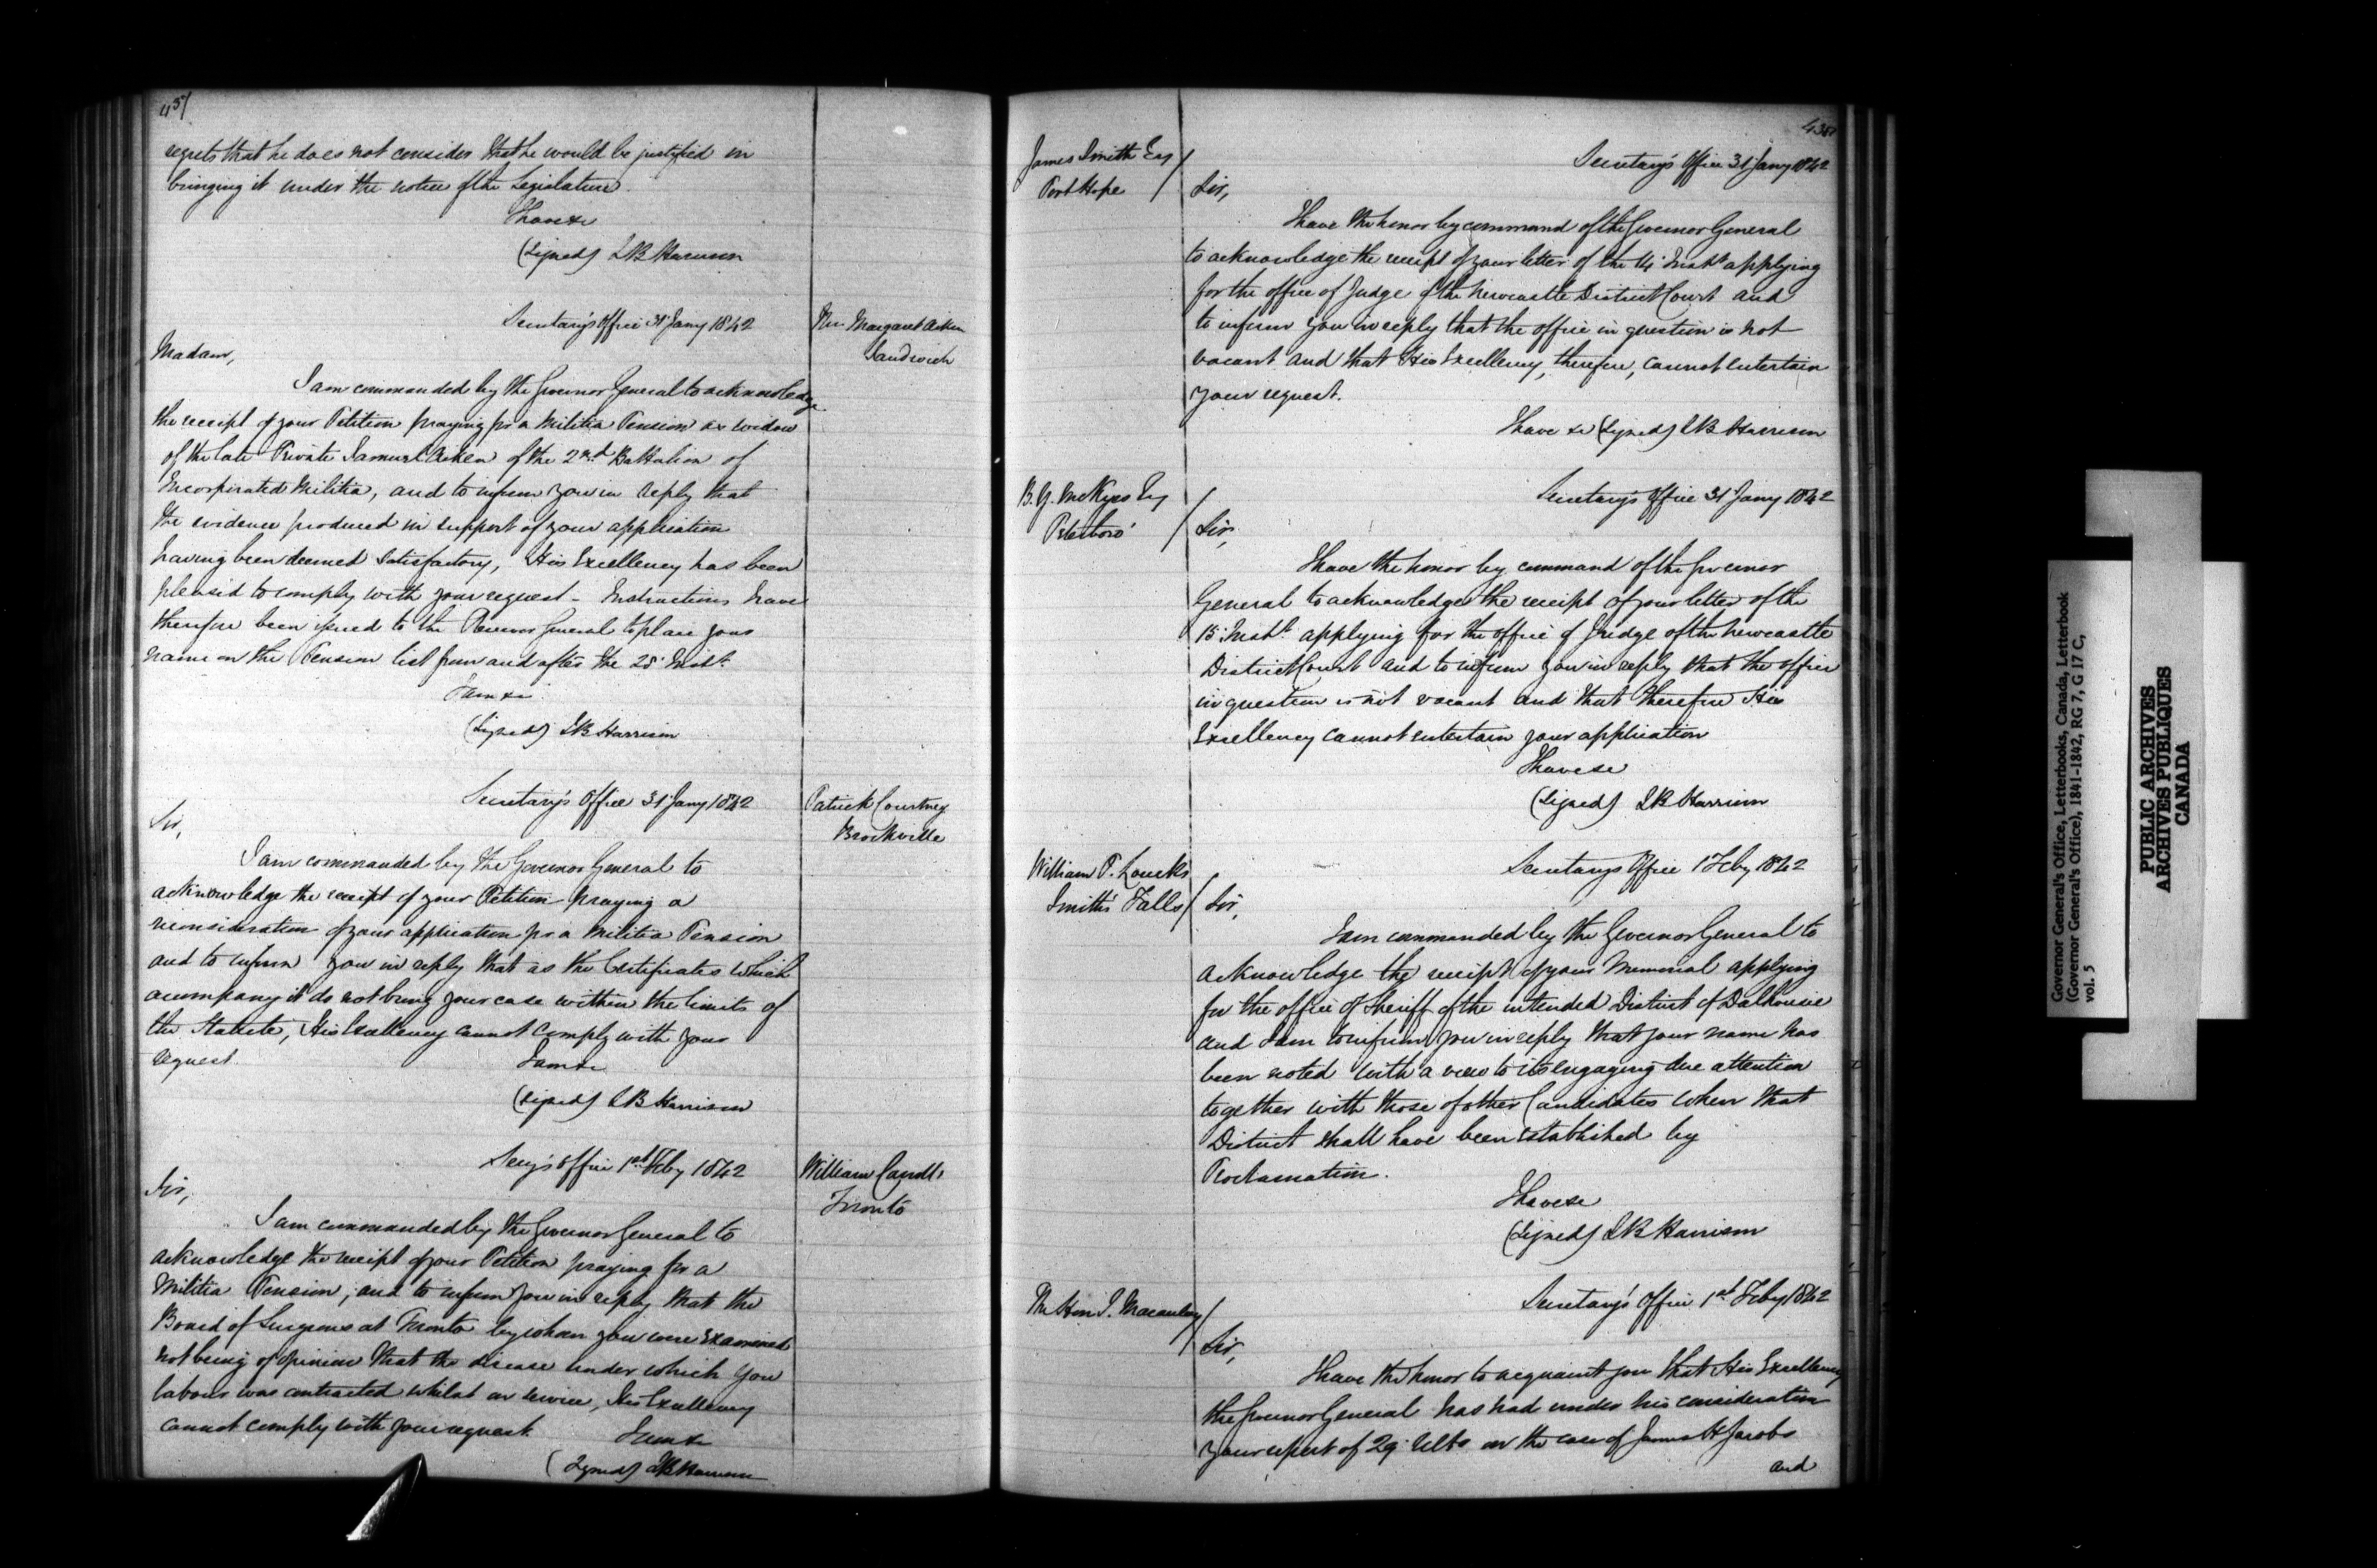 457
regrets that he does not consider that he would be justified in
bringing it under the notice of the Legislature.
I have &c
(Signed) S B Harrison
Secretary's Office 31 Jany 1842
Mrs. Margaret Aiken
Sandwich
Madam,
I am commanded by the Governor General to acknowledge
the receipt of your Petition praying for a Militia Pension as widow
of the late Private Samuel Aiken of the 2nd Battalion of
Incorporated Militia, and to inform you in reply that
the evidence produced in support of your application
having been deemed satisfactory, His Excellency has been
pleased to comply with your request - Instructions have
therefore been issued to the Receiver General to place your
name on the Pension list from and after the 25 Inst.
I am &c
(Signed) S B Harrison
Secretary's Office 31 Jany 1842
Patrick Courtney
Brockville
Sir,
I am commanded by the Governor General to
acknowledge the receipt of your Petition praying a
reconsideration of your application for a Militia Pension
and to inform you in reply that as the Certificates which
accompany it do not bring your case within the limits of
the Statute, His Excellency cannot comply with your
request.
I am &c
(Signed) S B Harrison
Secy's Office 1st Feby 1842
William
Toronto
Sir,
I am commanded by the Governor General to
acknowledge the receipt of your Petition praying for a
Militia Pension, and to inform you in reply that the
Board of Surgeons at Toronto by whom you were examined
not being of opinion that the disease under which you
labour was contracted whilst on service, His Excellency
cannot comply with your request
I am &c
(Signed) S B Harrison
458
James Smith Esq
Port Hope
Secretary's Office 31 Jany 1842
Sir,
I have the honor by command of the Governor General
to acknowledge the receipt of your letter of the 14 Inst. applying
for the office of Judge of the Newcastle District Court and
to inform you in reply that the office in question is not
vacant and that His Excellency, therefore, cannot entertain
your request.
I have &c (Signed) S B Harrison
B. Y. McKyes Esq
Peterboro'
Secretary's Office 31 Jany 1842
Sir,
I have the honor by command of the Governor
General to acknowledge the receipt of your letter of the
15 Inst. applying for the office of Judge of the Newcastle
District Court and to inform you in reply that the office
in question is not vacant and that therefore His
Excellency cannot entertain your application
I have &c
(Signed) S B Harrison
William P. Loucks
Smith's Falls
Secretary's Office 1 Feby 1842
Sir,
I am commanded by the Governor General to
acknowledge the receipt of your Memorial applying
for the office of Sheriff of the intended District of Dalhousie
and I am to inform you in reply that your name has
been noted with a view to its engaging due attention
together with those of other Candidates when that
District shall have been established by
Proclamation.
I have &c
(Signed) S B Harrison
The Hon J. Macaulay
Secretary's Office 1st Feby 1842
Sir,
I have the honor to acquaint you that His Excellency
the Governor General has had under his consideration
your report of 29 Ulto on the case of James H Jacobs
and
Governor General's Office, Letterbooks, Canada, Letterbook
(Governor General's Office), 1841-1842, RG 7, G 17 C,
vol. 5
PUBLIC ARCHIVES
ARCHIVES PUBLIQUES
CANADA